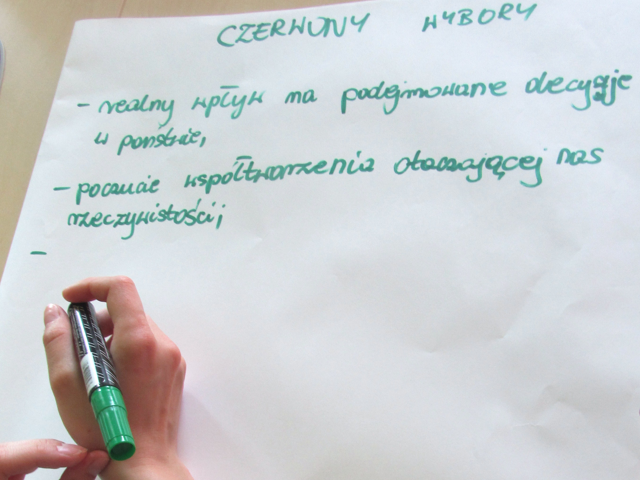 CZERWONY WYBORY
- realny wpływ na podejmowane decyzje
w państwie,
- poczucie współtworzenia otaczającej nas
rzeczywistości;
-